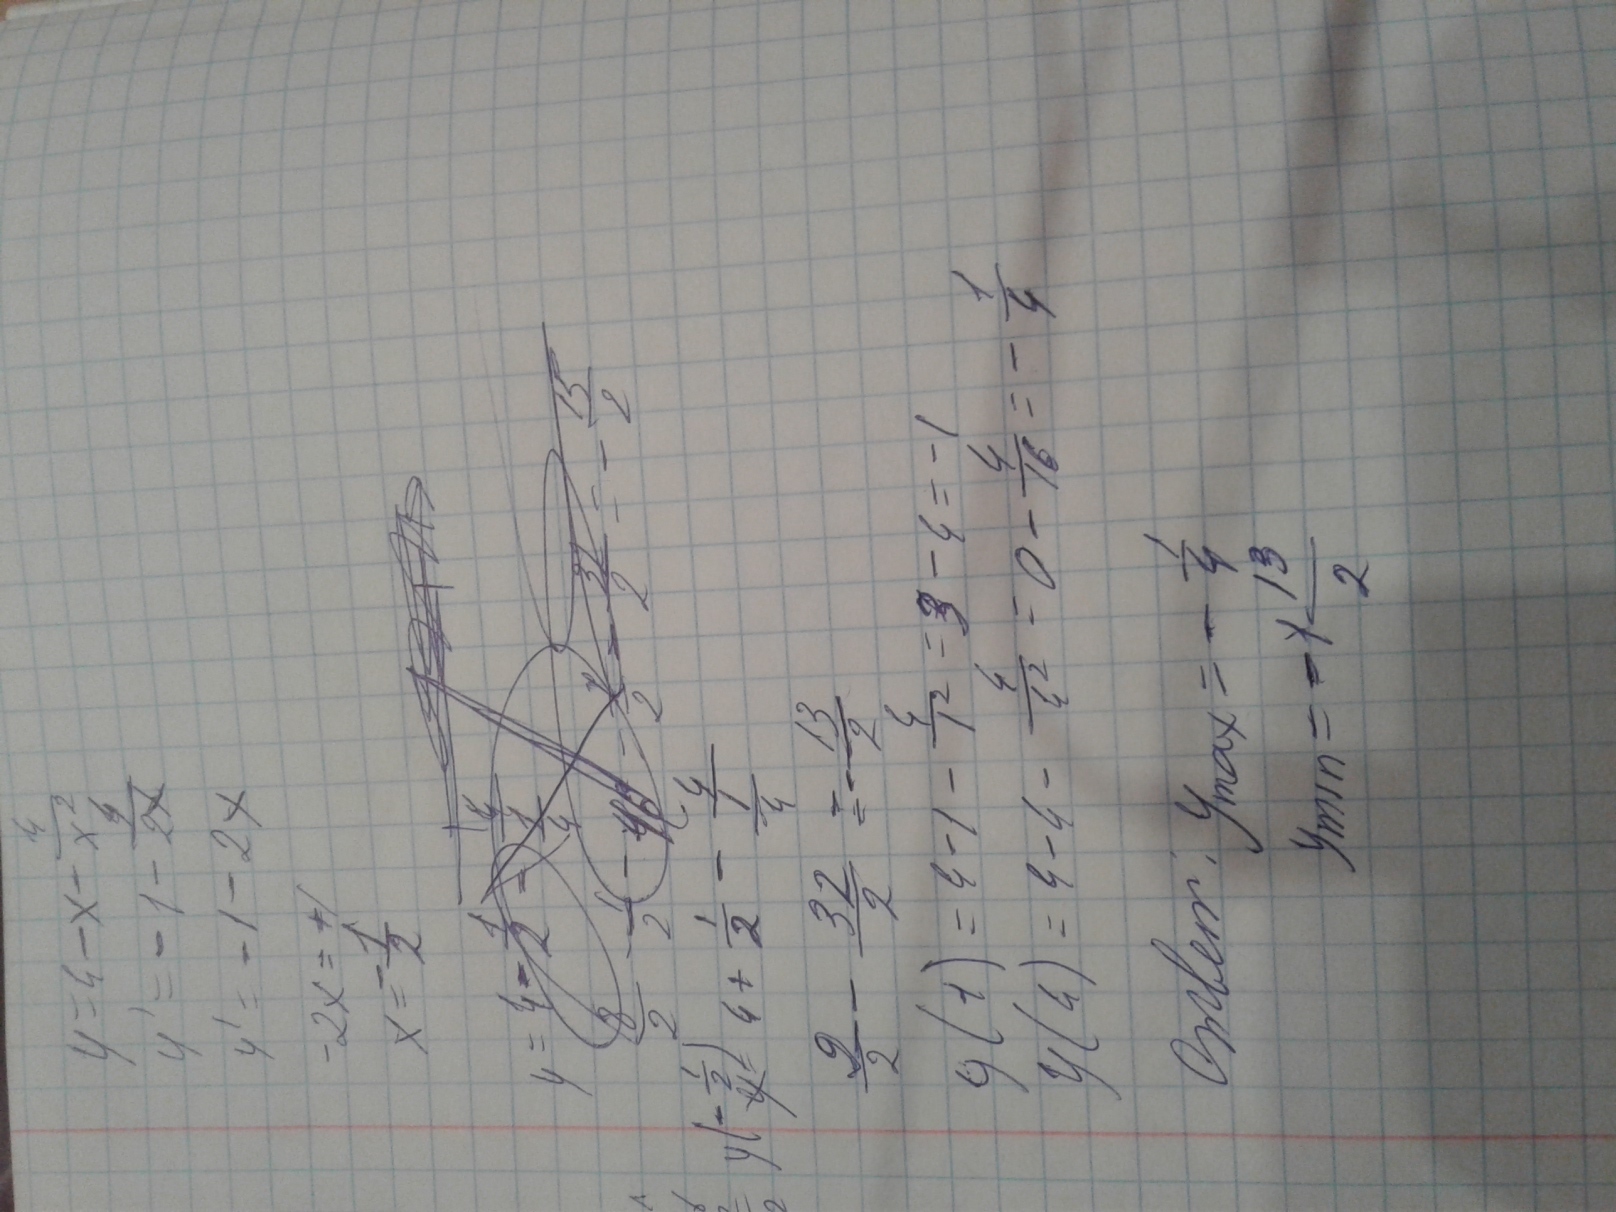 y = 4 - x - 4/x²
y' = -1 - 4/2x
y' = -1 - 2x
-2x = +1
x = -1/2
8/2 - 1/2
y(-1/2) = 4 + 1/2 - 4/(1/4)
9/2 - 32/2 = -13/2
y(1) = 4 - 1 - 4/1² = 3 - 4 = -1
y(4) = 4 - 4 - 4/4² = 0 - 4/16 = -1/4
Ответ: ymax = -1/4
ymin = -13/2